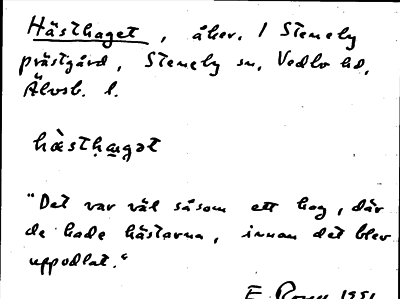 Hästhaget, åker. 1 Stenely
prästgård, Stenely sn, Vedbo hd,
Älvsb. l.
hàsthaget
"Det var väl såsom ett hag, där
de hade hästarna, innan det blev
uppodlat."
E. 1951